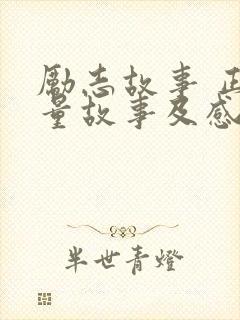 勵志故事 正
量故事及感
半世青燈